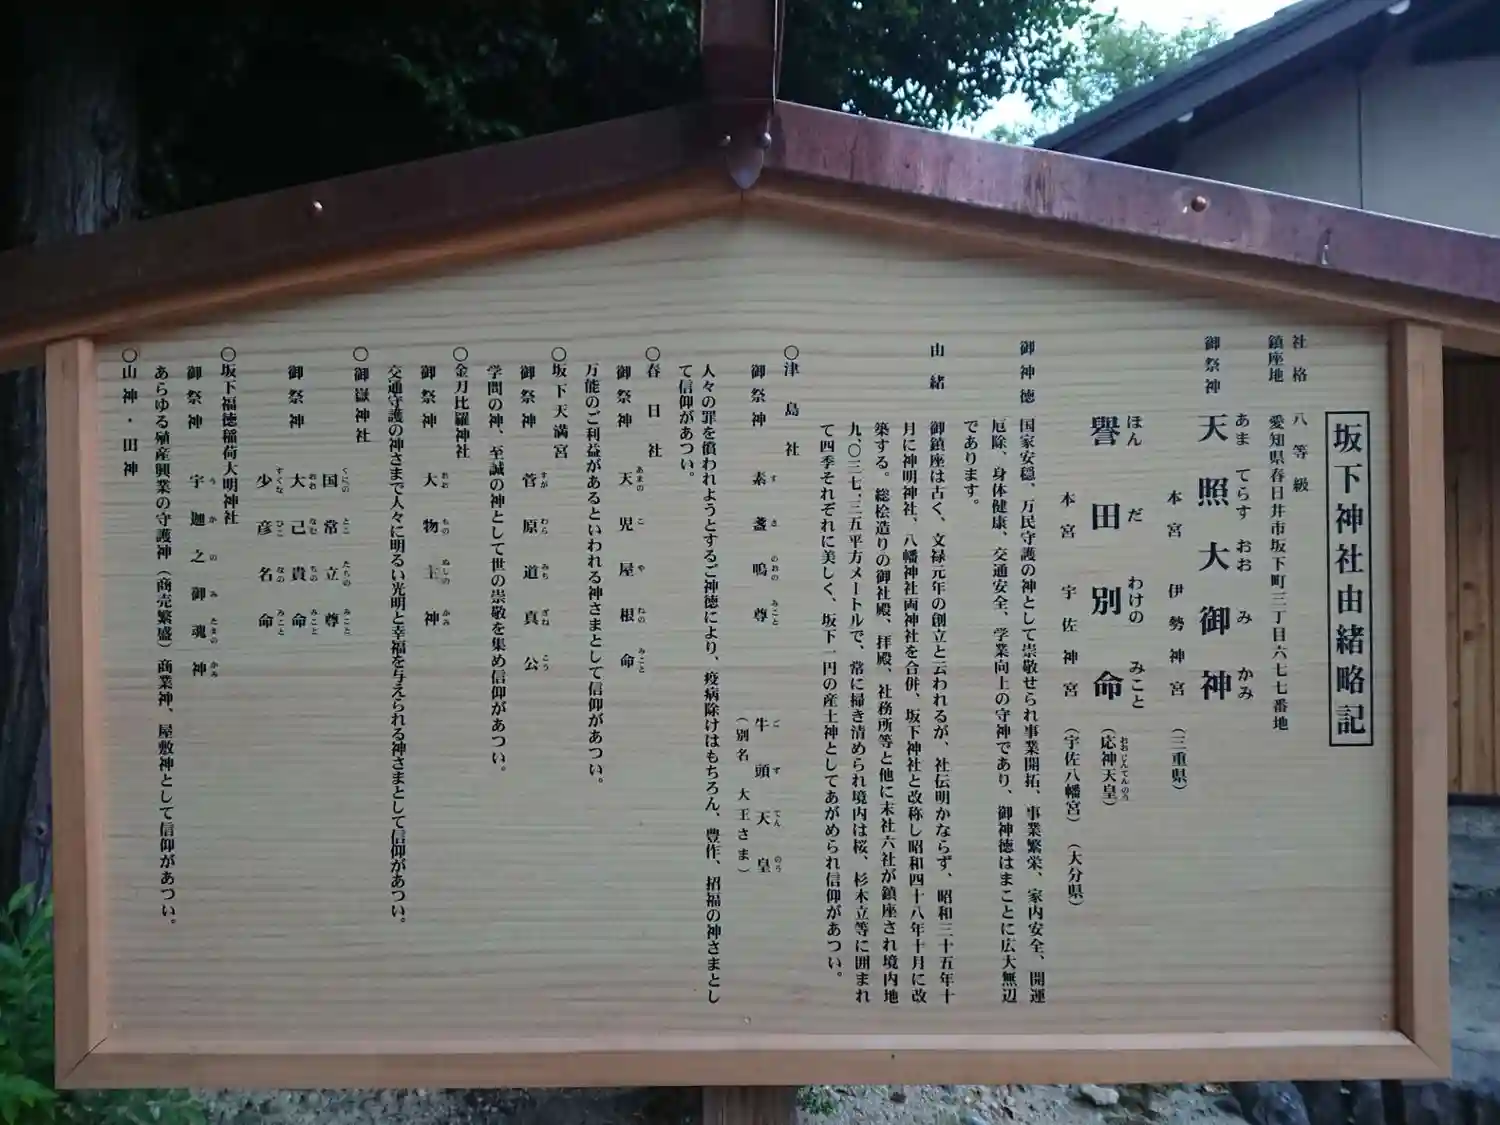 坂下神社由緒略記
社格　八等級
鎮座地　愛知県春日井市坂下町三丁目六七七番地
御祭神　天照大御神
あま　てらす　おお　み　かみ
本宮　伊勢神宮（三重県）
譽田別命（応神天皇）
ほん　だ　わけの　みこと　おおじんてんのう
本宮　宇佐神宮（宇佐八幡宮）（大分県）
御神徳　国家安穏、万民守護の神として崇敬せられ事業開拓、事業繁栄、家内安全、開運
厄除、身体健康、交通安全、学業向上の守神であり、御神徳はまことに広大無辺
であります。
由緒　御鎮座は古く、文禄元年の創立と云われるが、社伝明かならず、昭和三十五年十
月に神明神社、八幡神社両神社を合併、坂下神社と改称し昭和四十八年十月に改
築する。総桧造りの御社殿、拝殿、社務所等と他に末社六社が鎮座され境内地
九、〇三七、三五平方メートルで、常に掃き清められ境内は桜、杉木立等に囲まれ
て四季それぞれに美しく、坂下一円の産土神としてあがめられ信仰があつい。
〇津島社
御祭神　素盞嗚尊　牛頭天皇
す　さ　のおの　みこと　ご　ず　てん　のう
（別名　大王さま）
人々の罪を償われようとするご神徳により、疫病除けはもちろん、豊作、招福の神さまとし
て信仰があつい。
〇春日社
御祭神　天児屋根命
あまの　こ　や　ねの　みこと
万能のご利益があるといわれる神さまとして信仰があつい。
〇坂下天満宮
御祭神　菅原道真公
すが　わら　みち　ざね　こう
学問の神、至誠の神として世の崇敬を集め信仰があつい。
〇金刀比羅神社
御祭神　大物主神
おお　もの　ぬしの　かみ
交通守護の神さまで人々に明るい光明と幸福を与えられる神さまとして信仰があつい。
〇御嶽神社
国常立尊
くにの　とこ　たちの　みこと
御祭神　大己貴命
おお　なむ　ちの　みこと
少彦名命
すくな　ひこ　なの　みこと
〇坂下福徳稲荷大明神社
御祭神　宇迦之御魂神
う　か　の　み　たまの　かみ
あらゆる殖産興業の守護神（商売繁盛）商業神、屋敷神として信仰があつい。
〇山神・田神